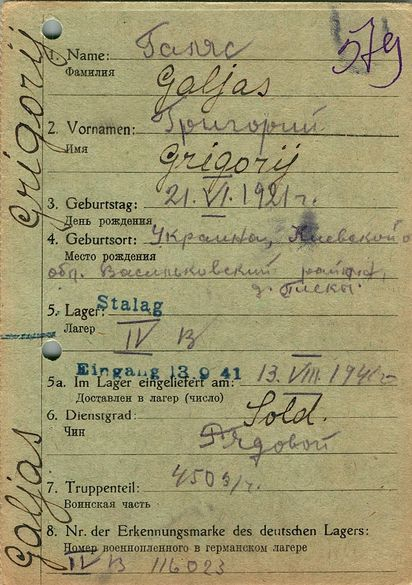 Grigorij
Galjas
579
1. Name: Галяс
Фамилия
Galjas
2. Vornamen: Григорий
Имя
Grigorij
3. Geburtstag: 21.VI.1921г.
День рождения
4. Geburtsort: Украина, Киевской
Место рождения
обл. Васильковский района,
д. Пески
5. Lager: Stalag
Лагер
IV B
Eingang 13 9 41
5a. Im Lager eingeliefert am: 13.VIII.1941г
Доставлен в лагер (число)
6. Dienstgrad: Sold.
Чин
Рядовой
7. Truppenteil:
Воинская часть
8. Nr. der Erkennungsmarke des deutschen Lagers:
Номер военнопленного в германском лагере
IV B 116023